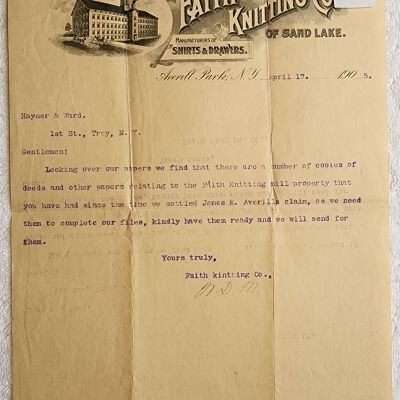 FAITH
KNITTING CO
OF SAND LAKE.
MANUFACTURERS OF
SHIRTS & DRAWERS.
Averill Park, N.Y. April 17. 1905.
Hayner & Ward.
1st St., Troy, N. Y.
Gentlemen:
Looking over our papers we find that there are a number of copies of
deeds and other papers relating to the Faith Knitting mill property that
you have had since the time we settled James K. Averills claim, as we need
them to complete our files, kindly have them ready and we will send for
them.
Yours truly,
Faith kintting Co.,